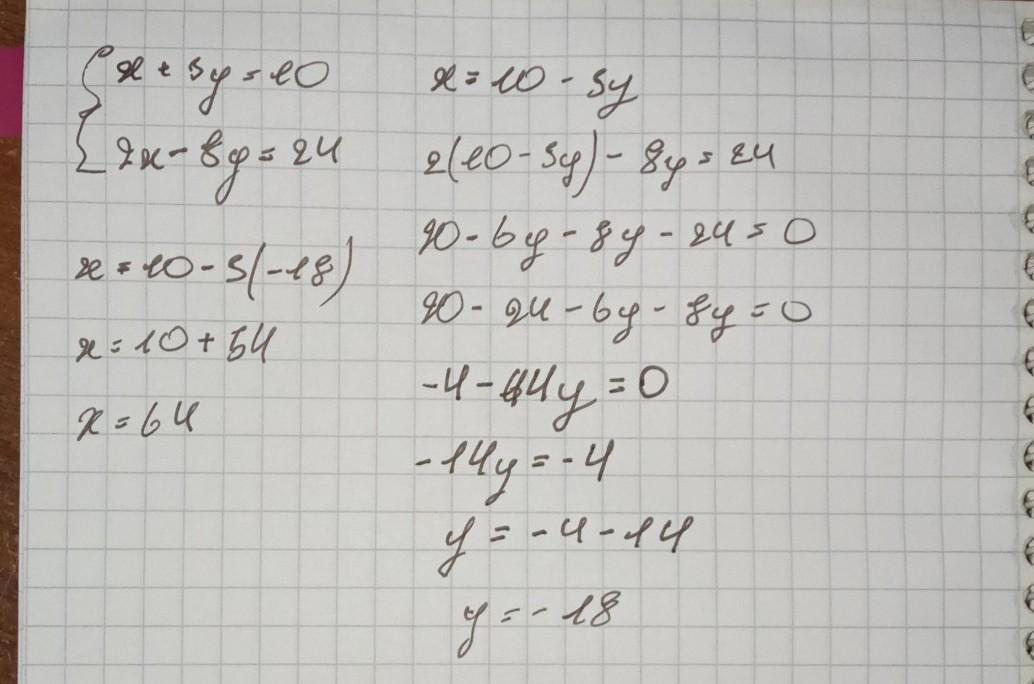 { x + 3y = 10
2x - 8y = 24
x = 10 - 3(-18)
x = 10 + 54
x = 64
x = 10 - 3y
2(10 - 3y) - 8y = 24
20 - 6y - 8y - 24 = 0
20 - 24 - 6y - 8y = 0
-4 - 14y = 0
-14y = -4
y = -4 - 14
y = -18